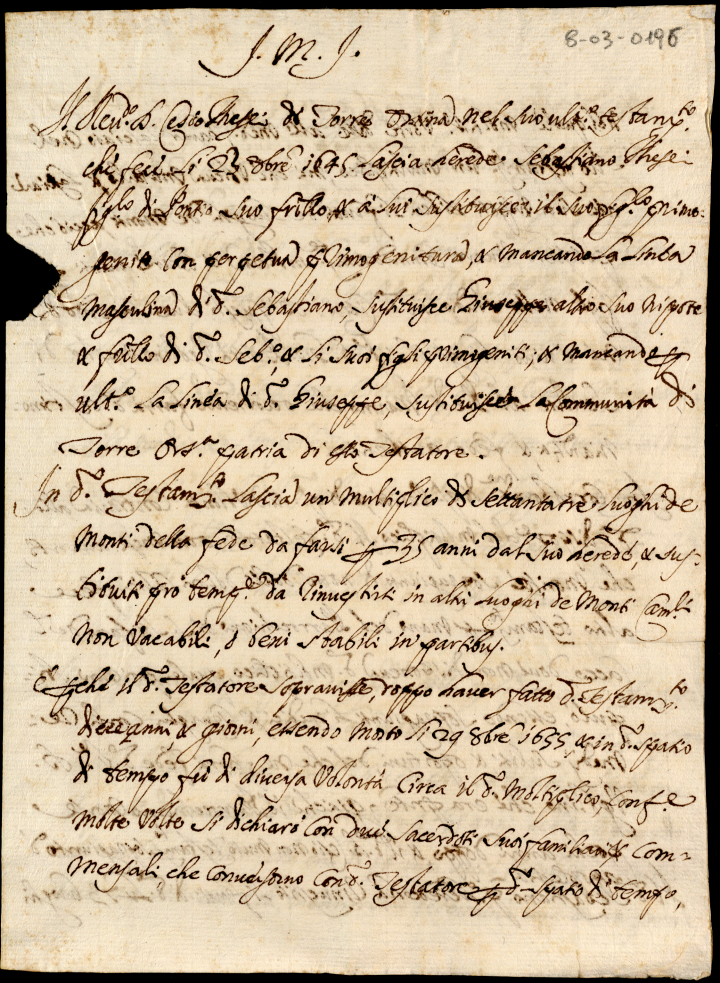 8-03-0196
J. M. J.
Il Rev.º D. These di Torre nel suo ult.º testam.to
che fece li 23 8bre 1645 lascia herede Sebastiano These
figlo di suo frillo, & à lui sustituisce il suo figlo primo-
genito con perpetua primogenitura, & mancando la linea
masculina di d.º Sebastiano, sustituisce Giuseppe altro suo nipote
& frillo di d.º Seb.º, & li suoi figli primogeniti; & mancando
ult.º la linea di d.º Giuseppe, sustituisce la Communità di
Torre patria di esso Testatore.
In d.º Testam.to lascia un multiplico di settantatre luoghi de
Monti della fede da farsi p 35 anni dal suo herede, & sus-
tituiti pro temp.e da rinvestirsi in altri luoghi de Monti Cam.li
non vacabili, ò beni stabili in partibus.
E pche il d.º Testatore sopravisse, doppo haver fatto d.º testam.to
diece anni, & giorni, essendo morto li 29 8bre 1655, & in d.º spatio
di tempo fù di diversa volontà circa il d.º Moltiplico, conf.e
molte volte si dichiarò con due sacerdoti suoi familiari & com-
mensali, che conversorno con d.º Testatore p d.º spatio di tempo,